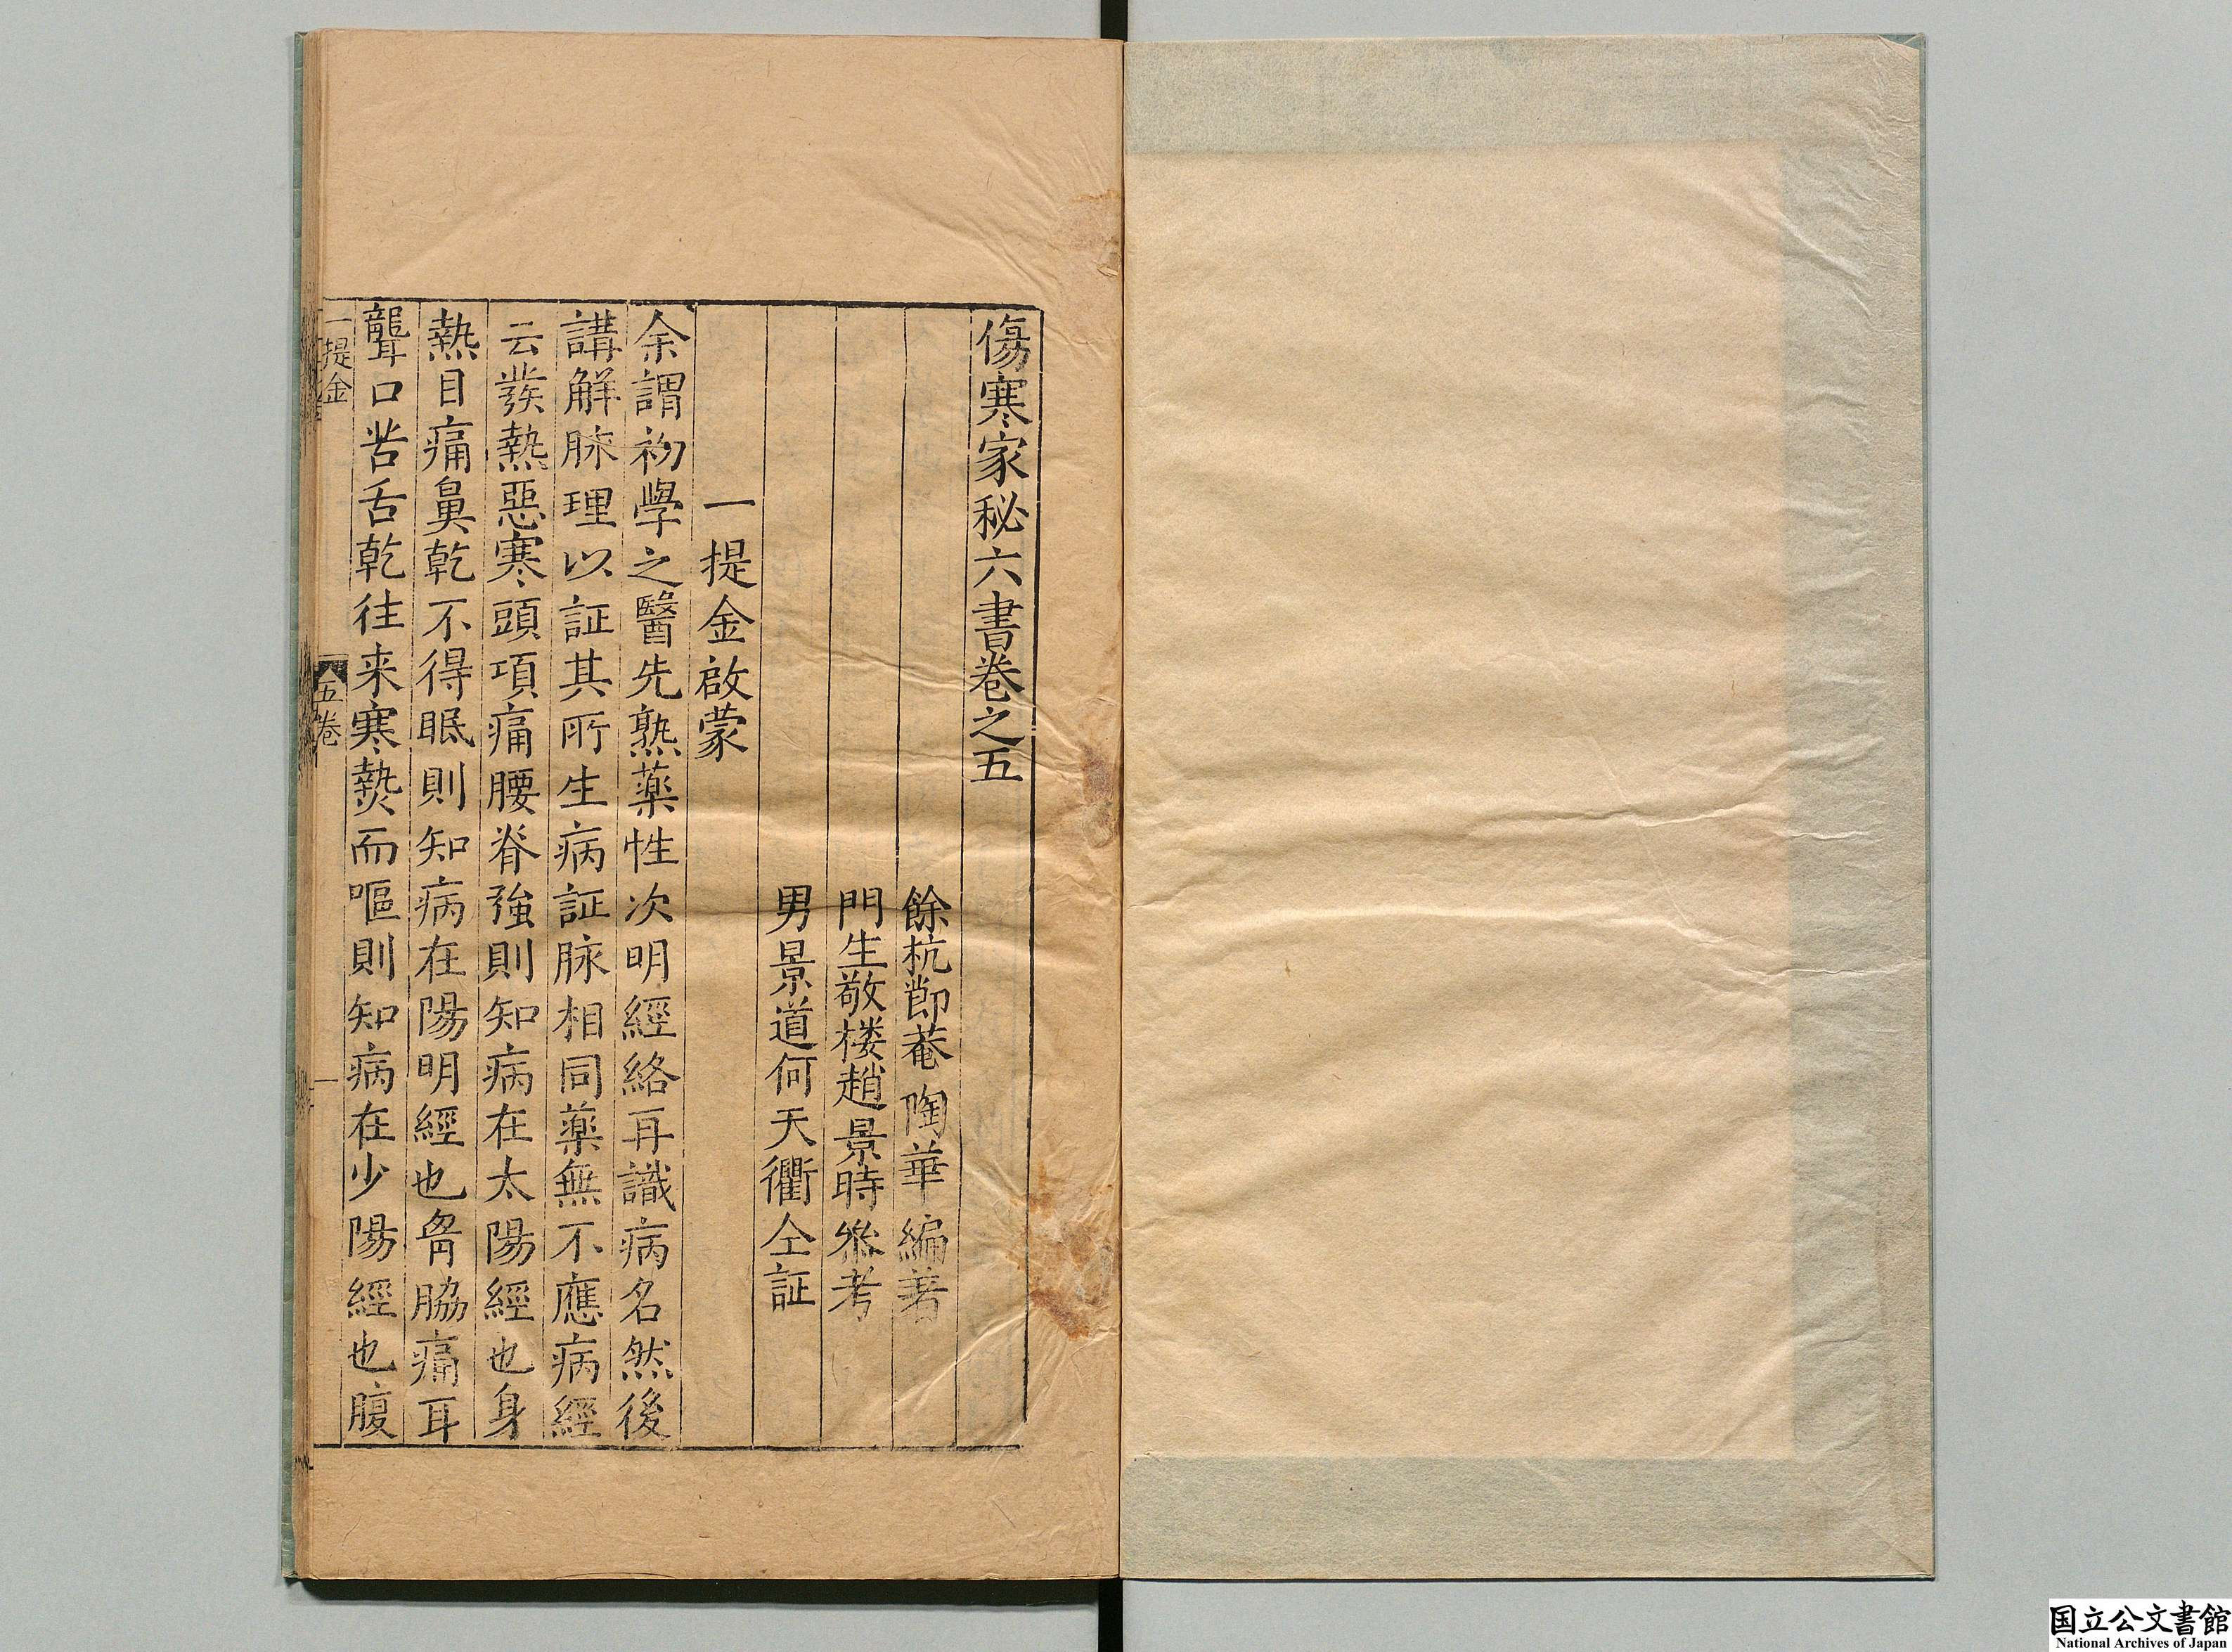 傷寒家秘六書卷之五
餘杭節菴陶華編著
門生敬楼趙景時叅考
男景道何天衢仝証
一提金啟蒙
余謂初學之醫先熟藥性次明經絡再識病名然後
講解脉理以証其所生病証脉相同藥無不應病經
云發熱惡寒頭項痛腰脊強則知病在太陽經也身
熱目痛鼻乾不得眠則知病在陽明經也胷脇痛耳
聾口苦舌乾往来寒熱而嘔則知病在少陽經也腹
一提金 五卷 一
国立公文書館
National Archives of Japan